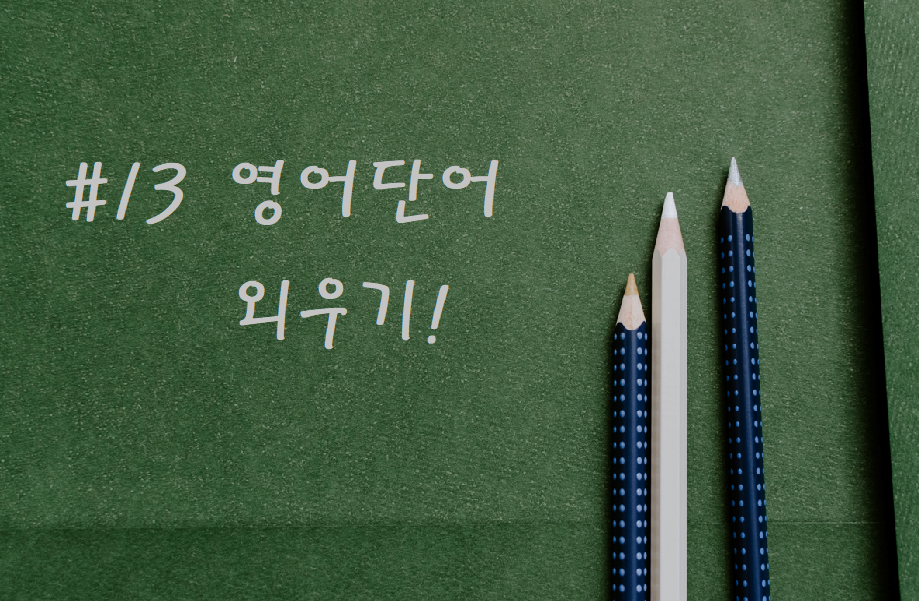 #13 영어단어
외우기!